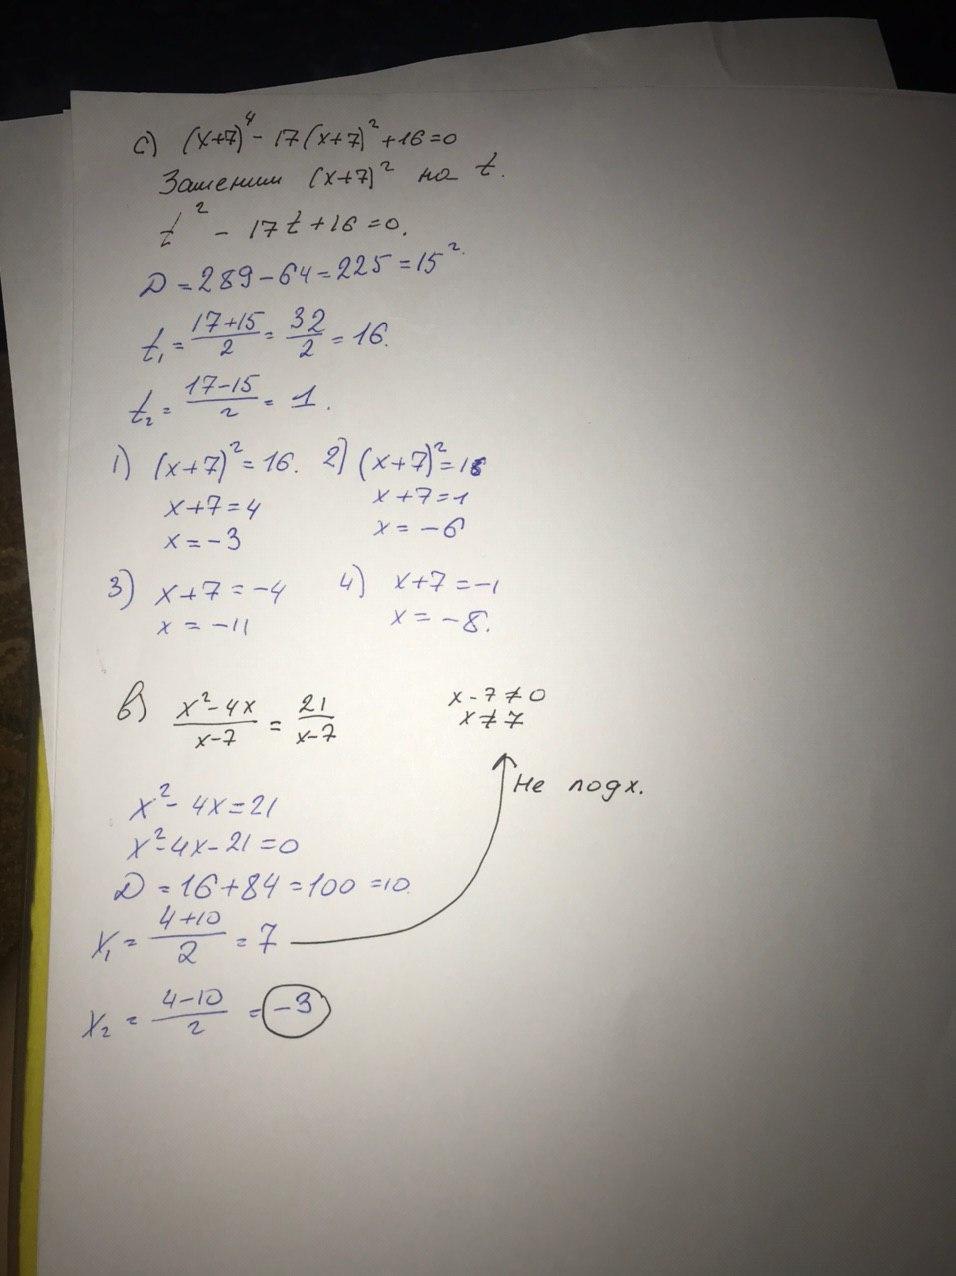 с) (x+7)⁴ - 17(x+7)² + 16 = 0
Заменим (x+7)² на t.
t² - 17t + 16 = 0.
D = 289 - 64 = 225 = 15².
t₁ = (17+15)/2 = 32/2 = 16.
t₂ = (17-15)/2 = 1.
1) (x+7)² = 16. 2) (x+7)² = 1
x+7 = 4 x+7 = 1
x = -3 x = -6
3) x+7 = -4 4) x+7 = -1
x = -11 x = -8.
в) (x² - 4x)/(x-7) = 21/(x-7) x - 7 ≠ 0
x ≠ 7
Не подх.
x² - 4x = 21
x² - 4x - 21 = 0
D = 16 + 84 = 100 = 10.
x₁ = (4+10)/2 = 7
x₂ = (4-10)/2 = -3